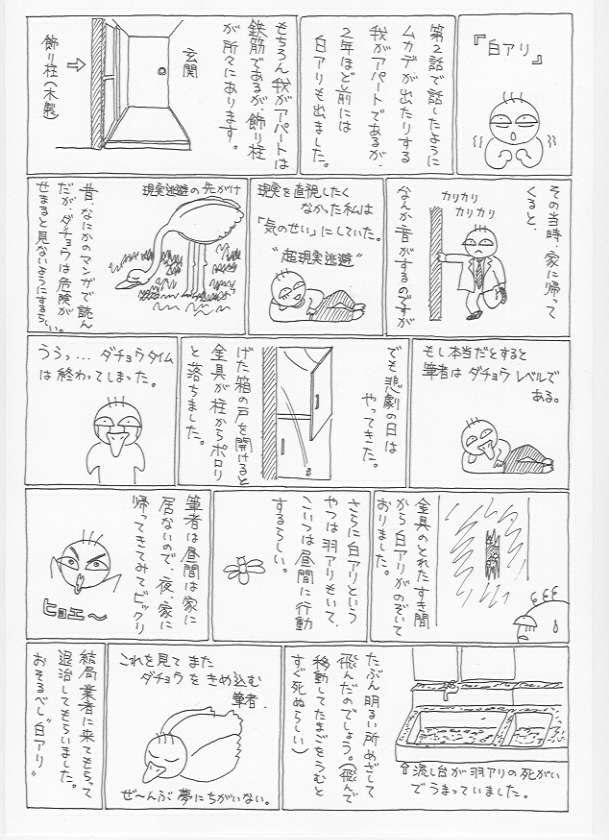 『白アリ』
第2話で話したように
ムカデが出たりする
我がアパートであるが、
2年ほど前には
白アリも出ました。
もちろん我がアパートは
鉄筋であるが、飾り柱
が所々にあります。
玄関
飾り柱(木製)
その当時、家に帰って
くると、
カリカリ
カリカリ
なんか音がするのですが
現実を直視したく
なかった私は
「気のせい」にしていた。
"超現実逃避"
現実逃避の先がけ
昔、なにかのマンガで読ん
だが、ダチョウは危険が
せまると見ないようにするらしい。
もし本当だとすると
筆者はダチョウレベルで
ある。
でも悲劇の日は
やってきた。
げた箱の戸を開けると
金具が柱からポロリ
と落ちました。
うぅっ...ダチョウタイム
は終わってしまった。
金具のとれたすき間
から白アリがのぞいて
おりました。
さらに白アリという
やつは羽アリもいて、
こいつは昼間に行動
するらしい。
筆者は昼間は家に
居ないので、夜、家に
帰ってきてみてビックリ
ヒョエ〜
⇧流し台が羽アリの死がい
でうまっていました。
たぶん明るい所めざして
飛んだのでしょう。(飛んで
移動してたまごをうむと
すぐ死ぬらしい)
これを見てまた
ダチョウをきめ込む
筆者.
ぜ〜んぶ夢にちがいない。
結局業者に来てもらって
退治してもらいました。
おそるべし"白アリ"